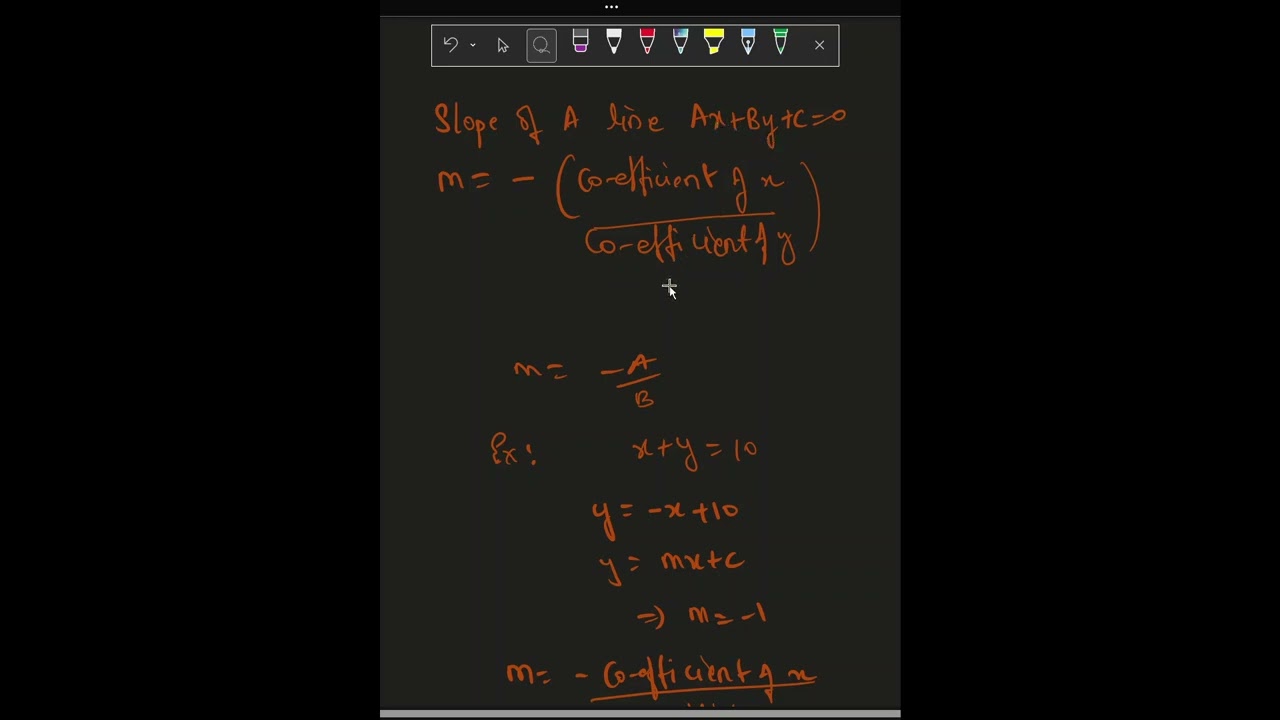 Slope of A line Ax+By+C=0
m = - (Co-efficient of x
Co-efficient of y)
m = -A
B
Ex: x+y=10
y = -x+10
y = mx+c
=) m = -1
m = - Co-efficient of x